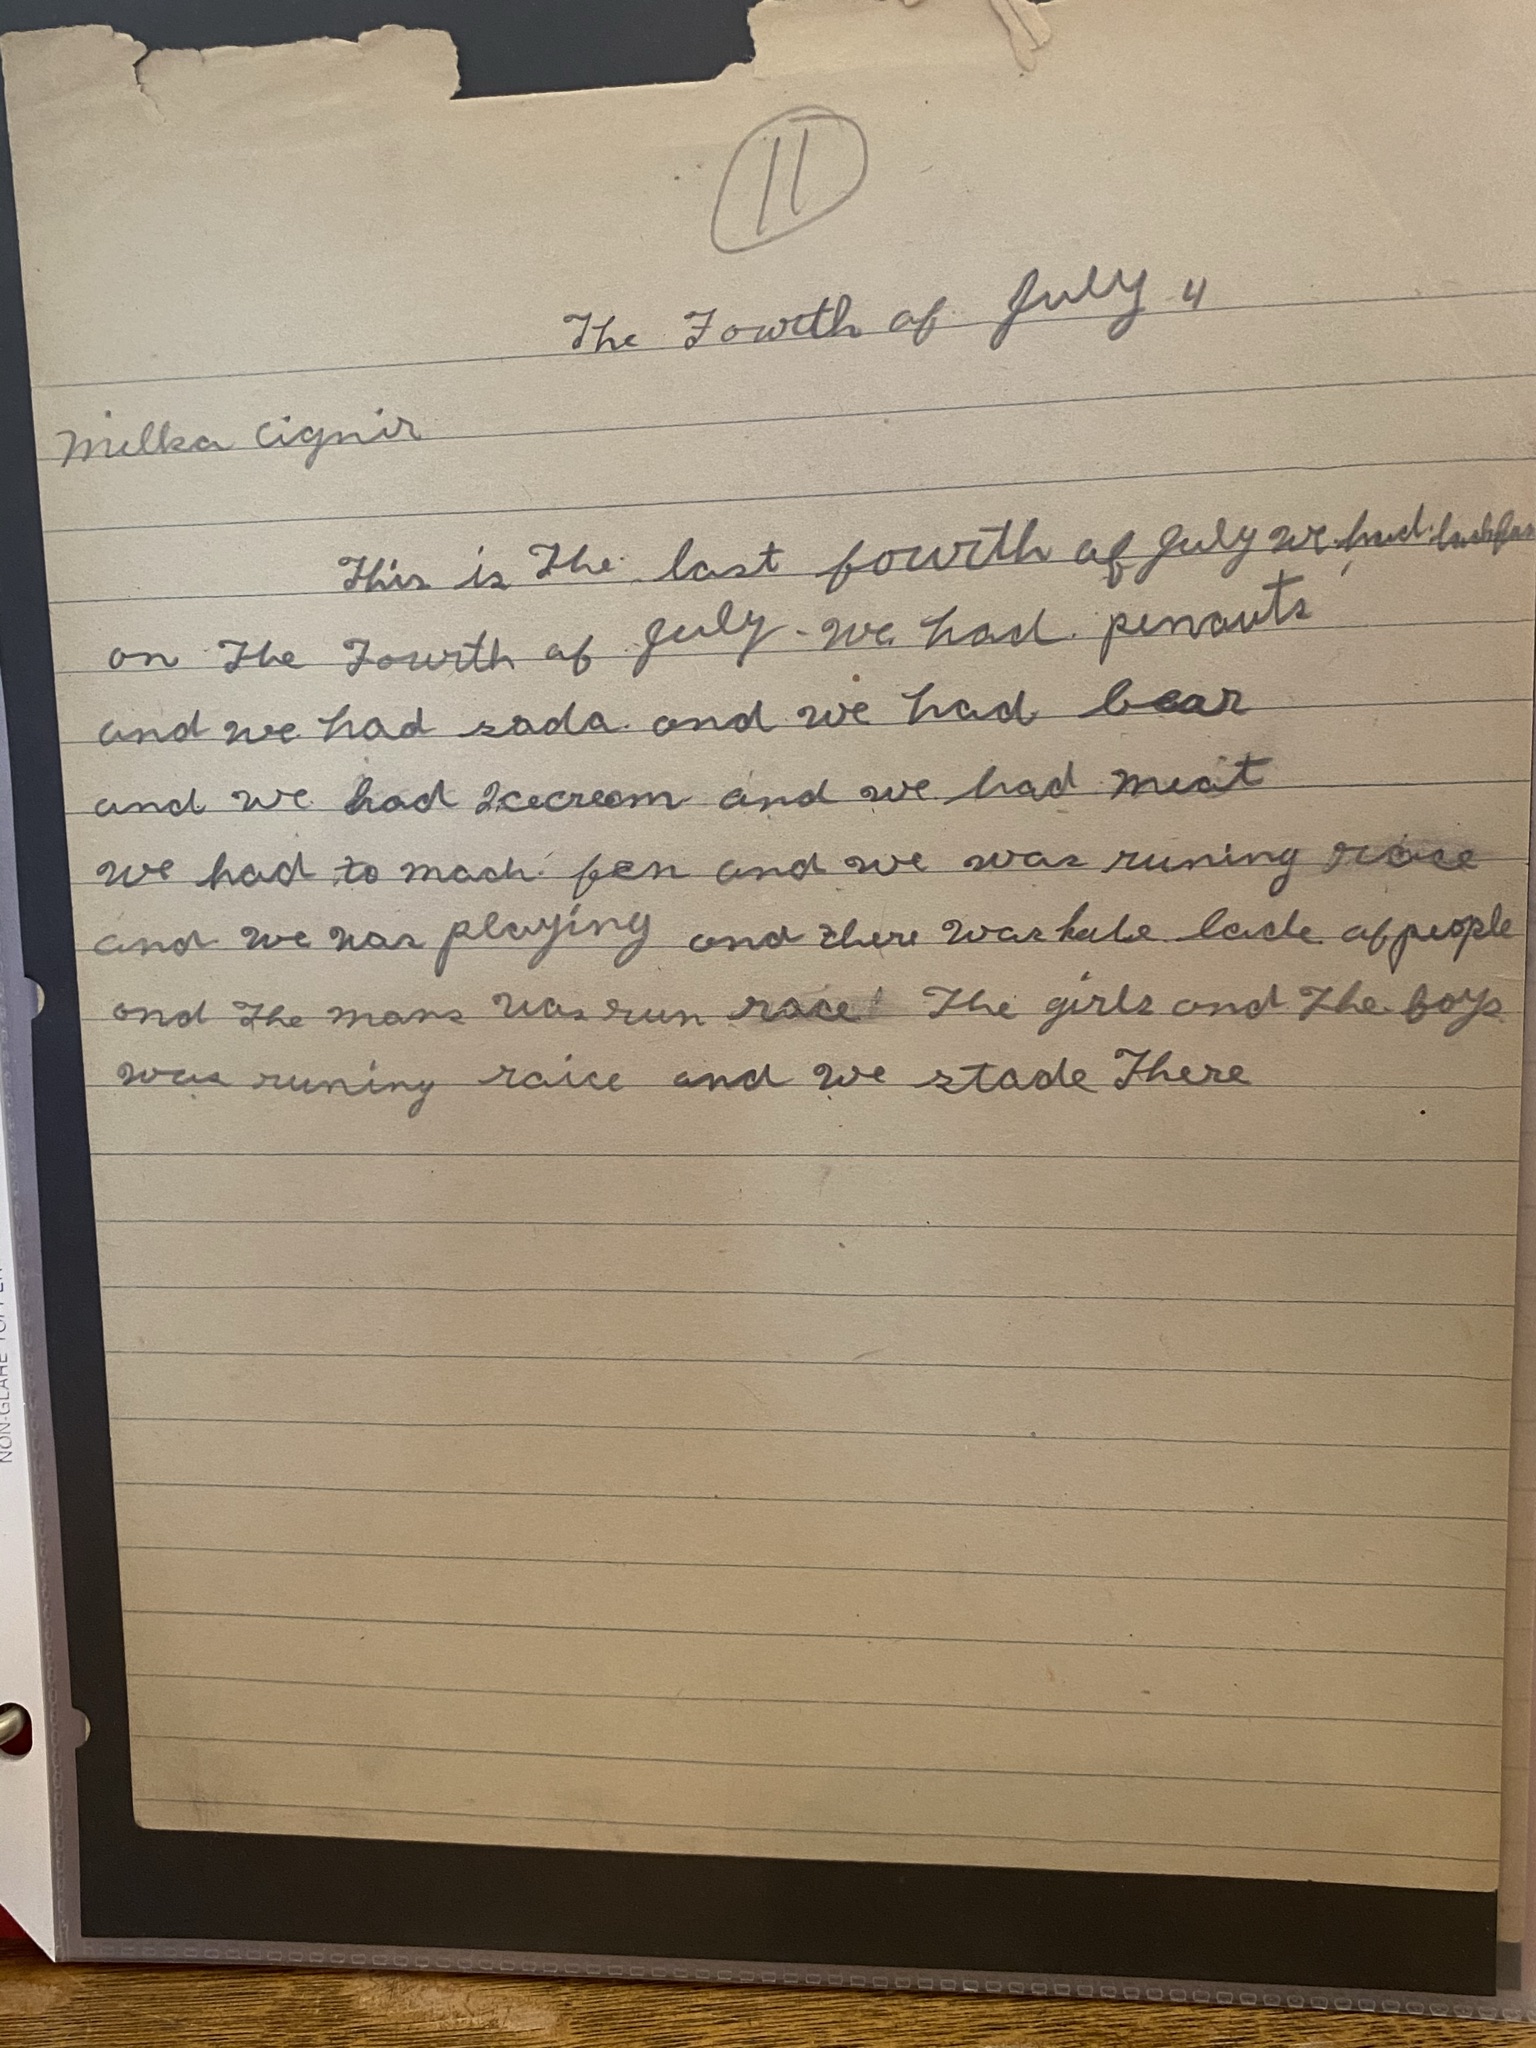 11
The Fourth of July 4
Milka Cignir
This is The last fourth of July we had
on The Fourth of July - we had penauts
and we had soda and we had bear
and we had Icecream and we had meat
we had to mach fen and we was runing raice
and we was playing and there was hale lade of people
and The mans was run race The girls and The boys
was runing raice and we stade There
NON-GLARE